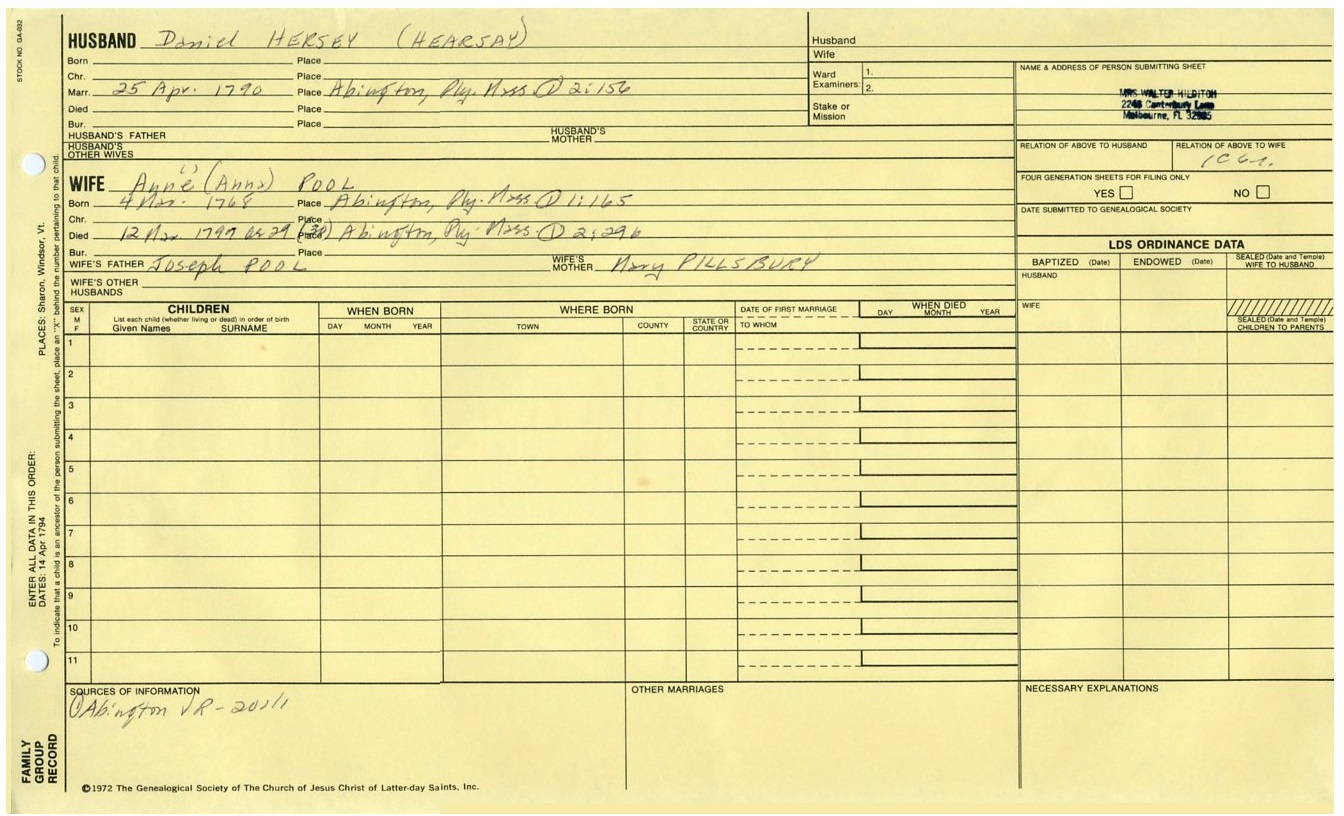 STOCK NO. GA-032
HUSBAND Daniel HERSEY (HEARSAY)
Born Place
Chr. Place
Marr. 25 Apr. 1790 Place Abington, Ply. Mass ① 2:156
Died Place
Bur. Place
HUSBAND'S FATHER HUSBAND'S MOTHER
HUSBAND'S OTHER WIVES
Husband
Wife
Ward Examiners: 1.
2.
Stake or Mission
NAME & ADDRESS OF PERSON SUBMITTING SHEET
MRS WALTER HILDITCH
Canterbury Lane
Melbourne, FL
RELATION OF ABOVE TO HUSBAND RELATION OF ABOVE TO WIFE
FOUR GENERATION SHEETS FOR FILING ONLY
YES NO
DATE SUBMITTED TO GENEALOGICAL SOCIETY
WIFE Anne (Anna) POOL
Born 4 Mar. 1768 Place Abington, Ply. Mass ① 1:165
Chr. Place
Died 12 Mar 1797 ae 29 Place Abington, Ply. Mass. ① 2:296
Bur. Place
WIFE'S FATHER Joseph POOL WIFE'S MOTHER Mary PILLSBURY
WIFE'S OTHER HUSBANDS
LDS ORDINANCE DATA
BAPTIZED (Date) ENDOWED (Date) SEALED (Date and Temple) WIFE TO HUSBAND
HUSBAND
WIFE
SEALED (Date and Temple) CHILDREN TO PARENTS
SEX M F
CHILDREN
List each child (whether living or dead) in order of birth
Given Names SURNAME
WHEN BORN
DAY MONTH YEAR
WHERE BORN
TOWN COUNTY STATE OR COUNTRY
DATE OF FIRST MARRIAGE
TO WHOM
WHEN DIED
DAY MONTH YEAR
1
2
3
4
5
6
7
8
9
10
11
SOURCES OF INFORMATION
① Abington VR
OTHER MARRIAGES
NECESSARY EXPLANATIONS
©1972 The Genealogical Society of The Church of Jesus Christ of Latter-day Saints, Inc.
FAMILY GROUP RECORD
ENTER ALL DATA IN THIS ORDER:
DATES: 14 Apr 1794 PLACES: Sharon, Windsor, Vt.
To indicate that a child is an ancestor of the person submitting the sheet, place an "X" behind the number pertaining to that child.